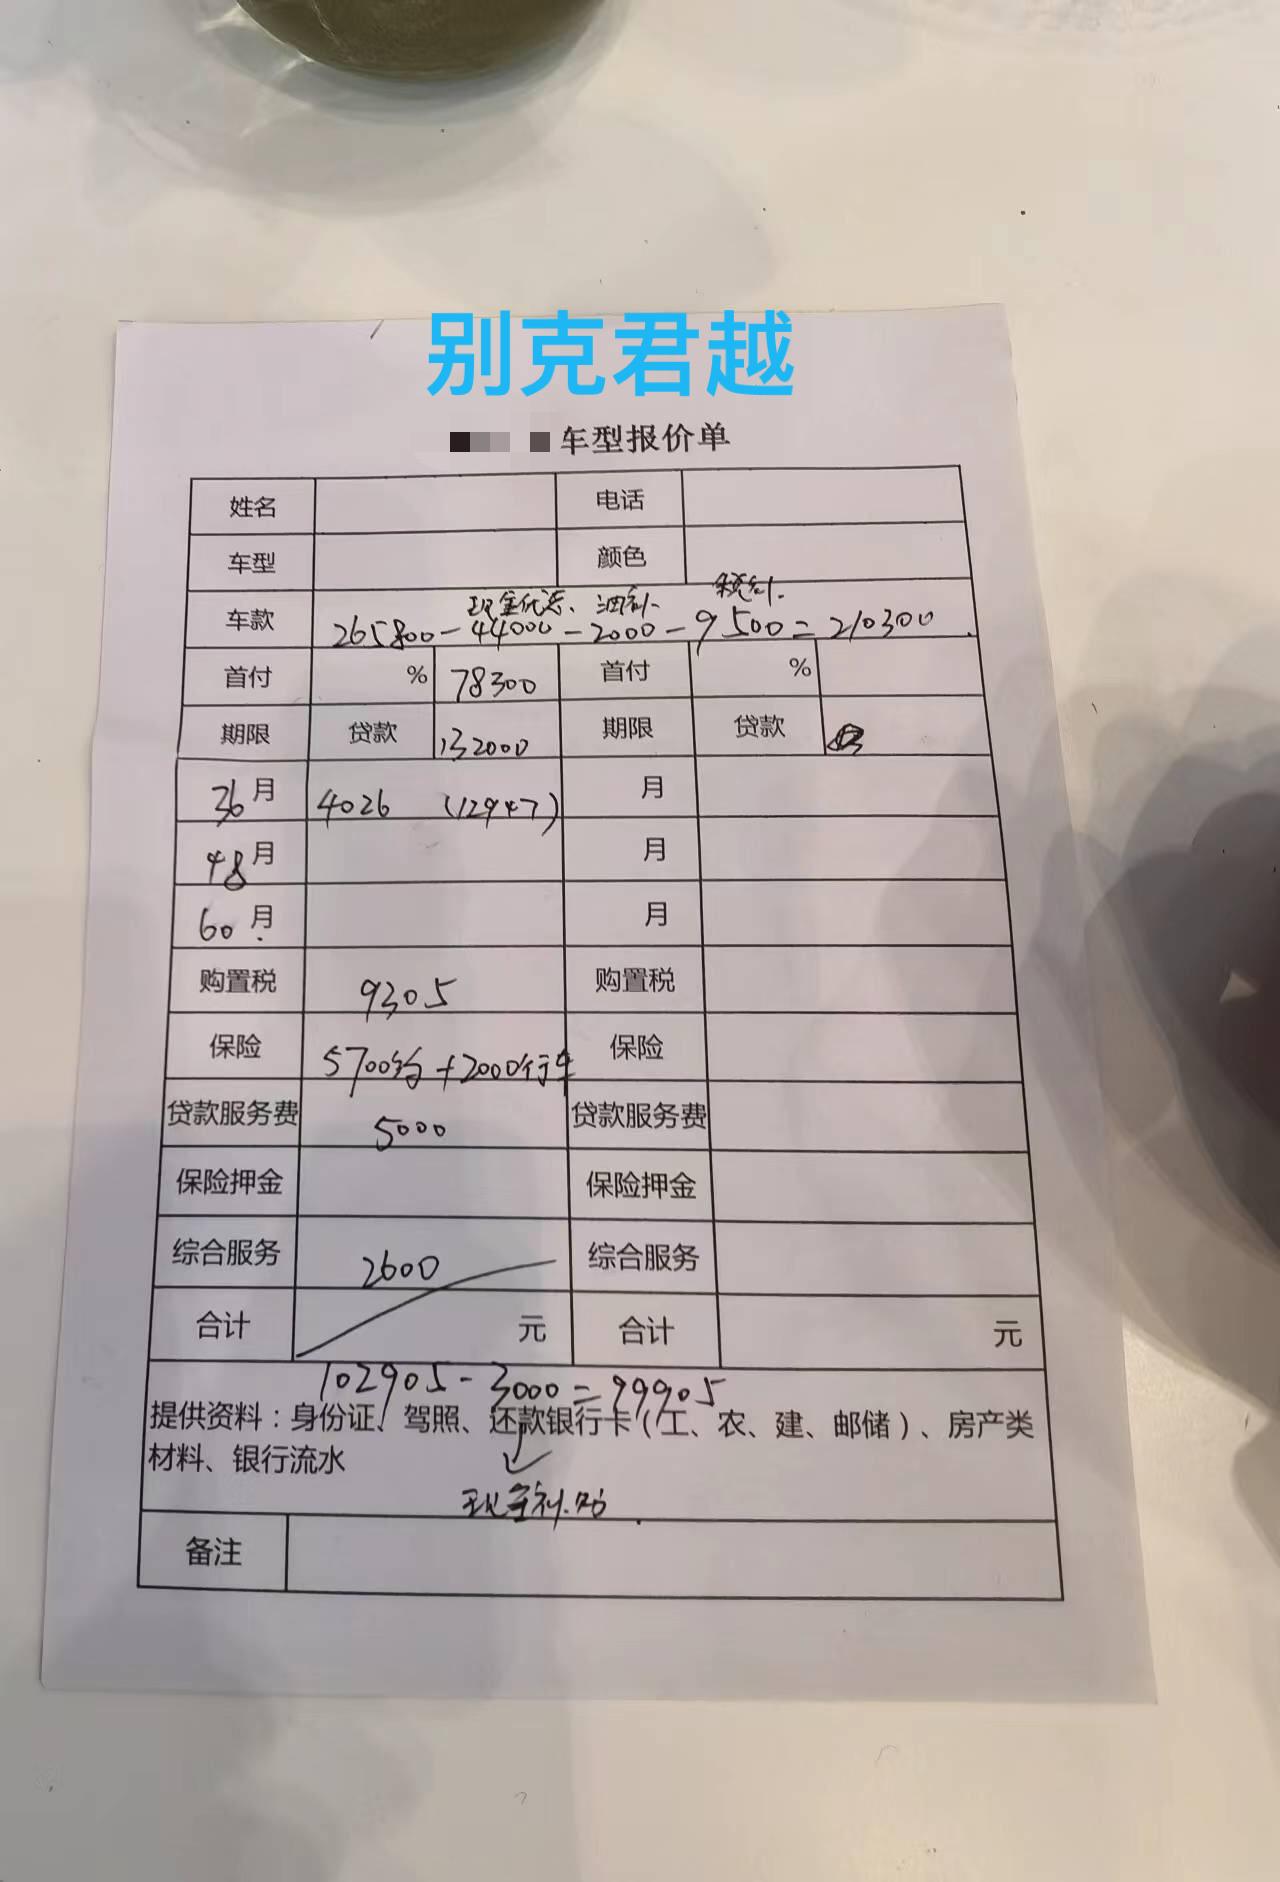 别克君越
车型报价单
姓名 电话
车型 颜色
现金优惠、油补 税补.
车款 265800-44000-2000-9500=210300.
首付 % 78300 首付 %
期限 贷款 132000 期限 贷款
36月 4026 (12947) 月
48月 月
60月 月
购置税 9305 购置税
保险 5700约+2000行车 保险
贷款服务费 5000 贷款服务费
保险押金 保险押金
综合服务 2600 综合服务
合计 元 合计 元
102905-3000=99905
提供资料：身份证、驾照、还款银行卡（工、农、建、邮储）、房产类
材料、银行流水
现金补贴.
备注